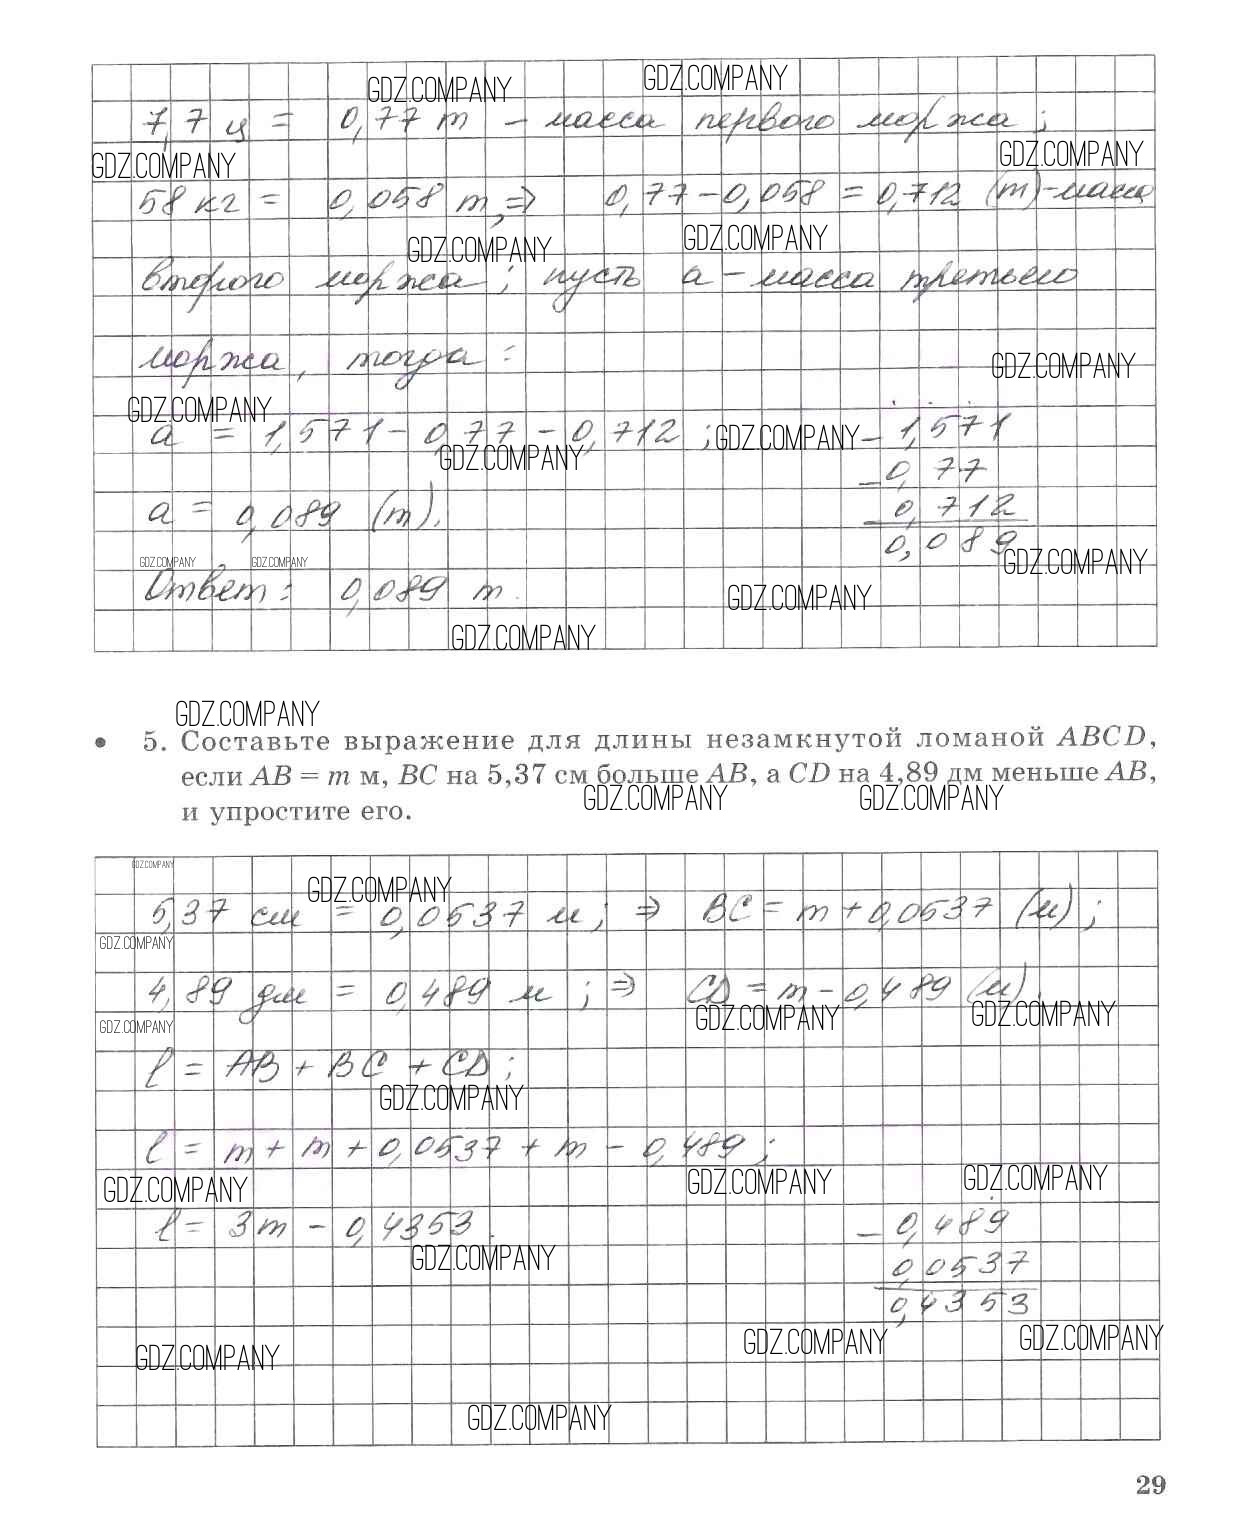 GDZ.COMPANY GDZ.COMPANY
7,7 ц = 0,77 т – масса первого моржа ;
GDZ.COMPANY GDZ.COMPANY
58 кг = 0,058 т, ⇒ 0,77 – 0,058 = 0,712 (т) – масса
GDZ.COMPANY GDZ.COMPANY
второго моржа ; пусть а – масса третьего
моржа, тогда :
GDZ.COMPANY
GDZ.COMPANY
а = 1,571 – 0,77 – 0,712 ; GDZ.COMPANY – 1,571
GDZ.COMPANY – 0,77
а = 0,089 (т). – 0,712
0,089
GDZ.COMPANY GDZ.COMPANY GDZ.COMPANY
Ответ : 0,089 т. GDZ.COMPANY
GDZ.COMPANY
GDZ.COMPANY
• 5. Составьте выражение для длины незамкнутой ломаной ABCD,
если AB = m м, BC на 5,37 см больше AB, а CD на 4,89 дм меньше AB,
GDZ.COMPANY GDZ.COMPANY
и упростите его.
GDZ.COMPANY
GDZ.COMPANY
5,37 см = 0,0537 м ; ⇒ BC = m + 0,0537 (м) ;
GDZ.COMPANY
4,89 дм = 0,489 м ; ⇒ CD = m – 0,489 (м).
GDZ.COMPANY GDZ.COMPANY GDZ.COMPANY
ℓ = AB + BC + CD ;
GDZ.COMPANY
ℓ = m + m + 0,0537 + m – 0,489 ;
GDZ.COMPANY GDZ.COMPANY GDZ.COMPANY
ℓ = 3m – 0,4353. – 0,489
GDZ.COMPANY 0,0537
0,4353
GDZ.COMPANY GDZ.COMPANY GDZ.COMPANY
GDZ.COMPANY
29